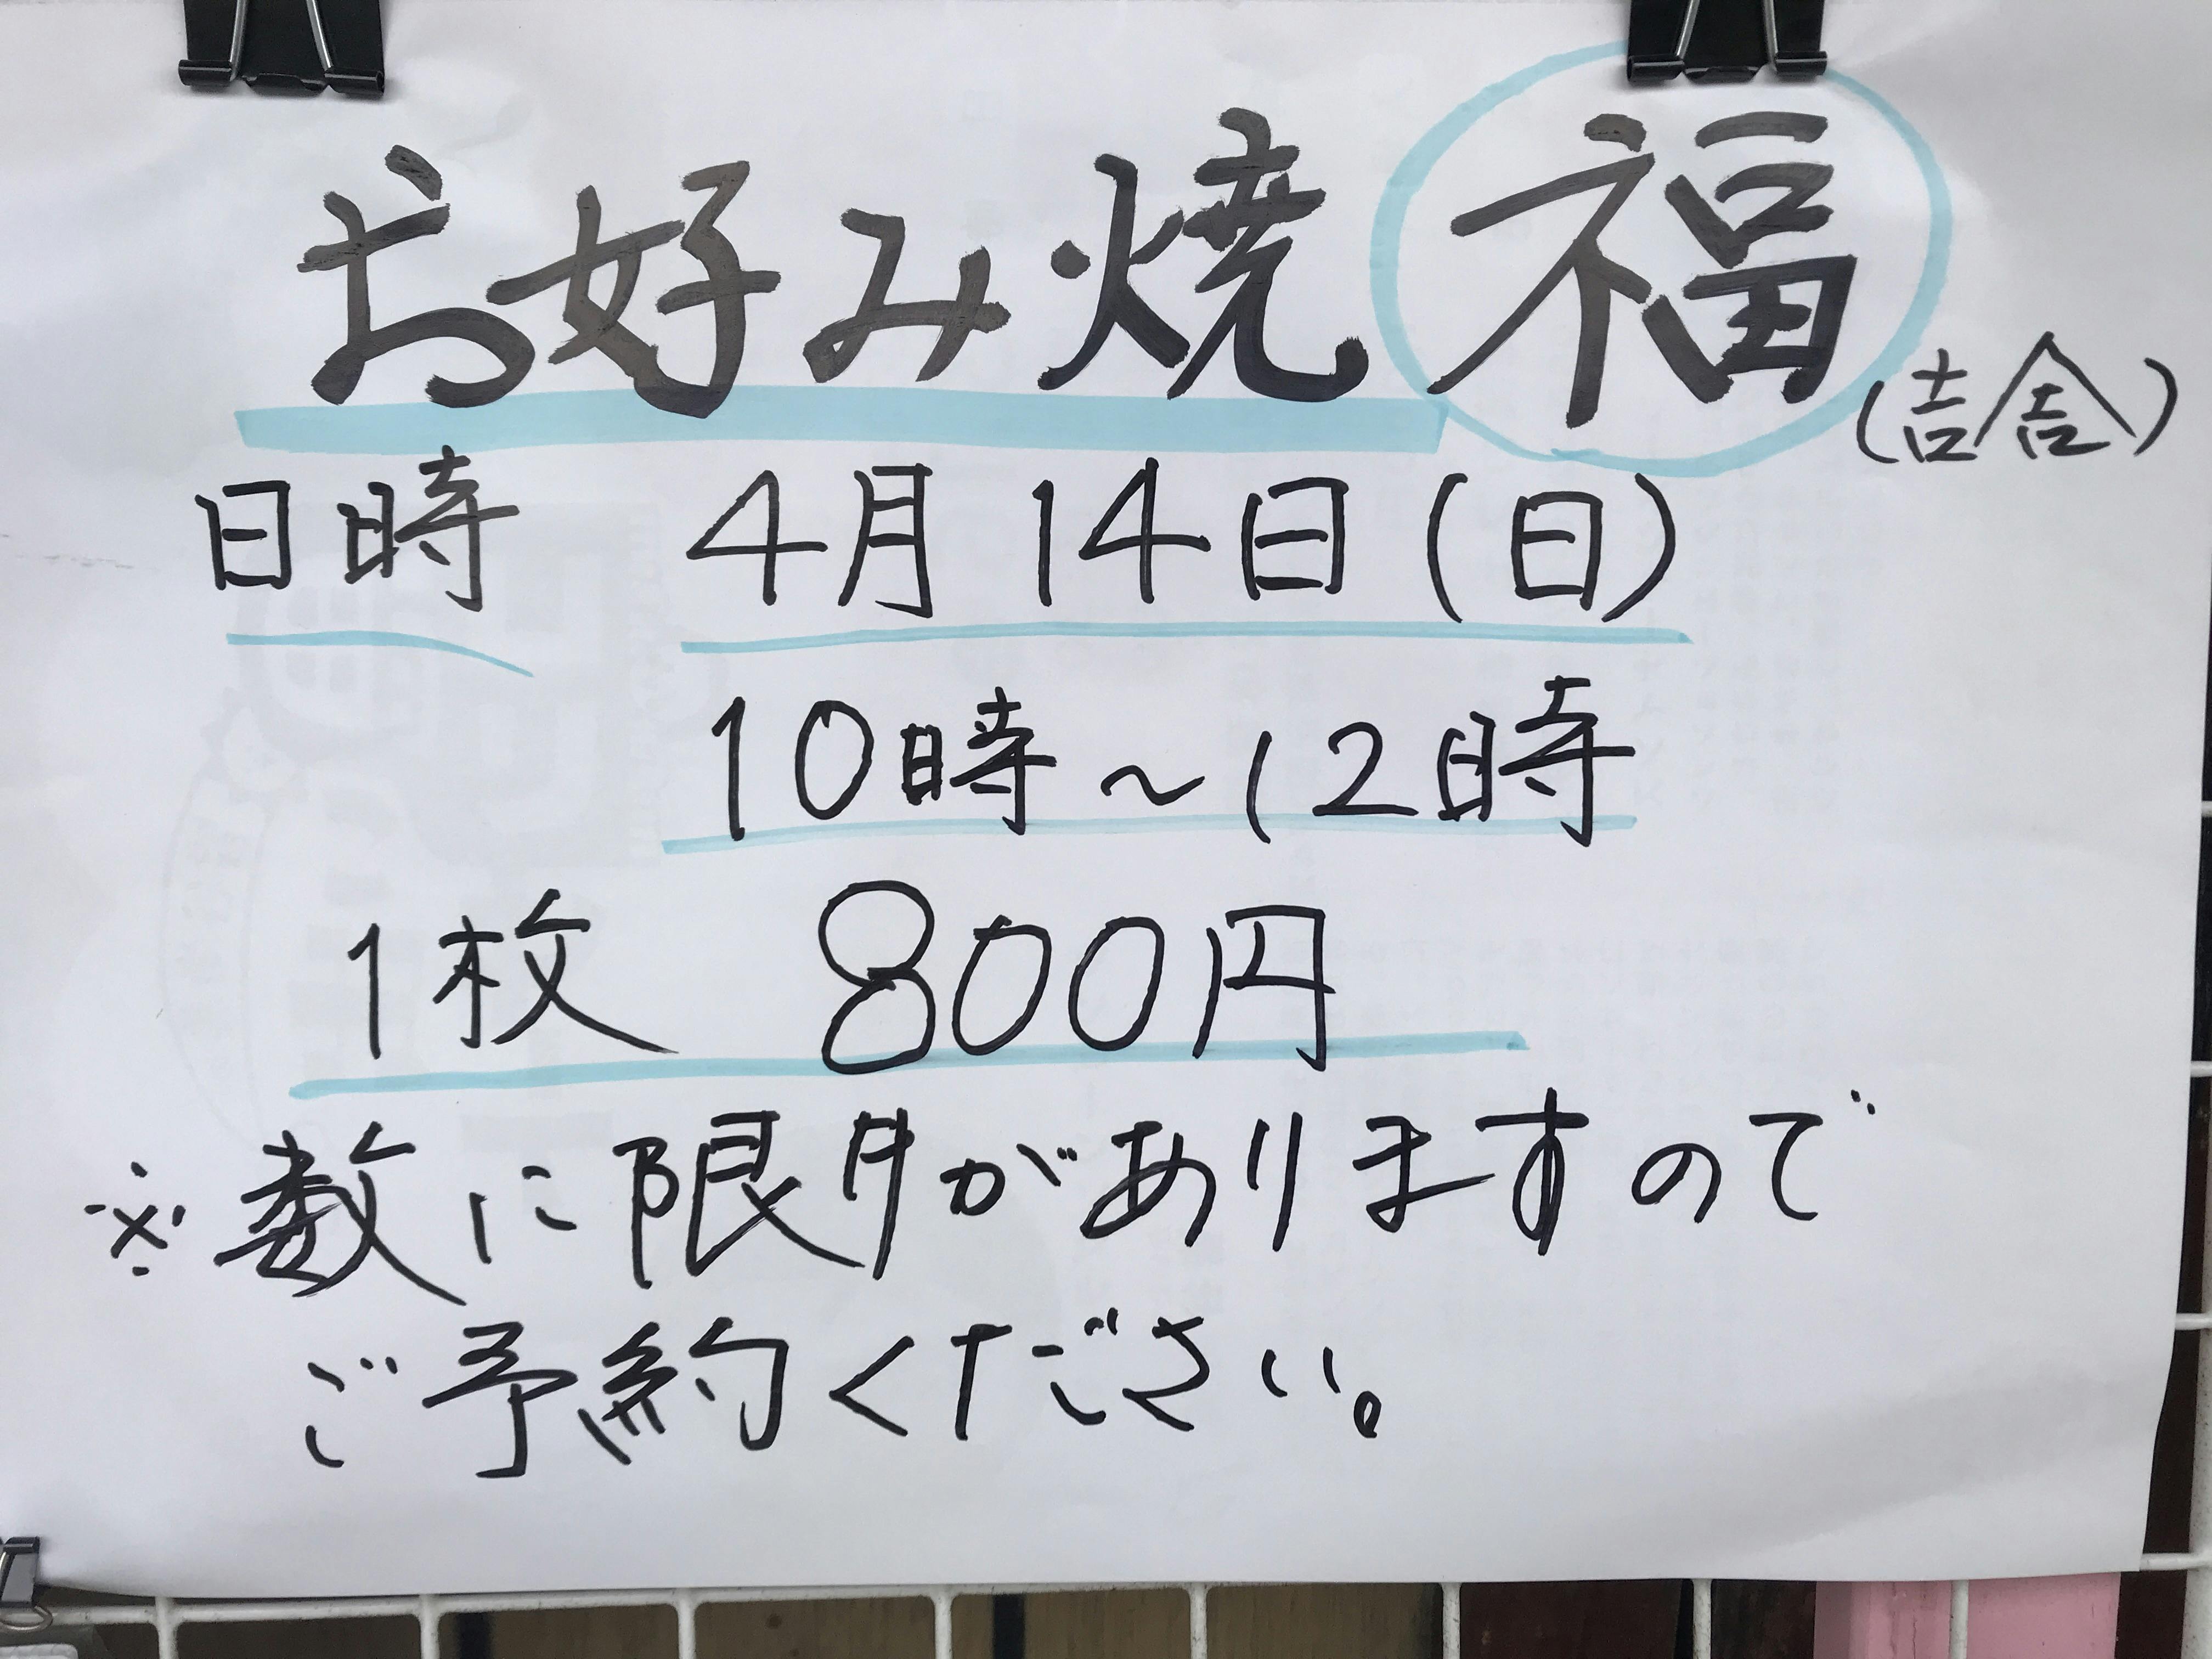 お好み焼 福(吉舎)
日時 4月14日(日)
10時~12時
1枚 800円
※数に限りがありますので
ご予約ください。